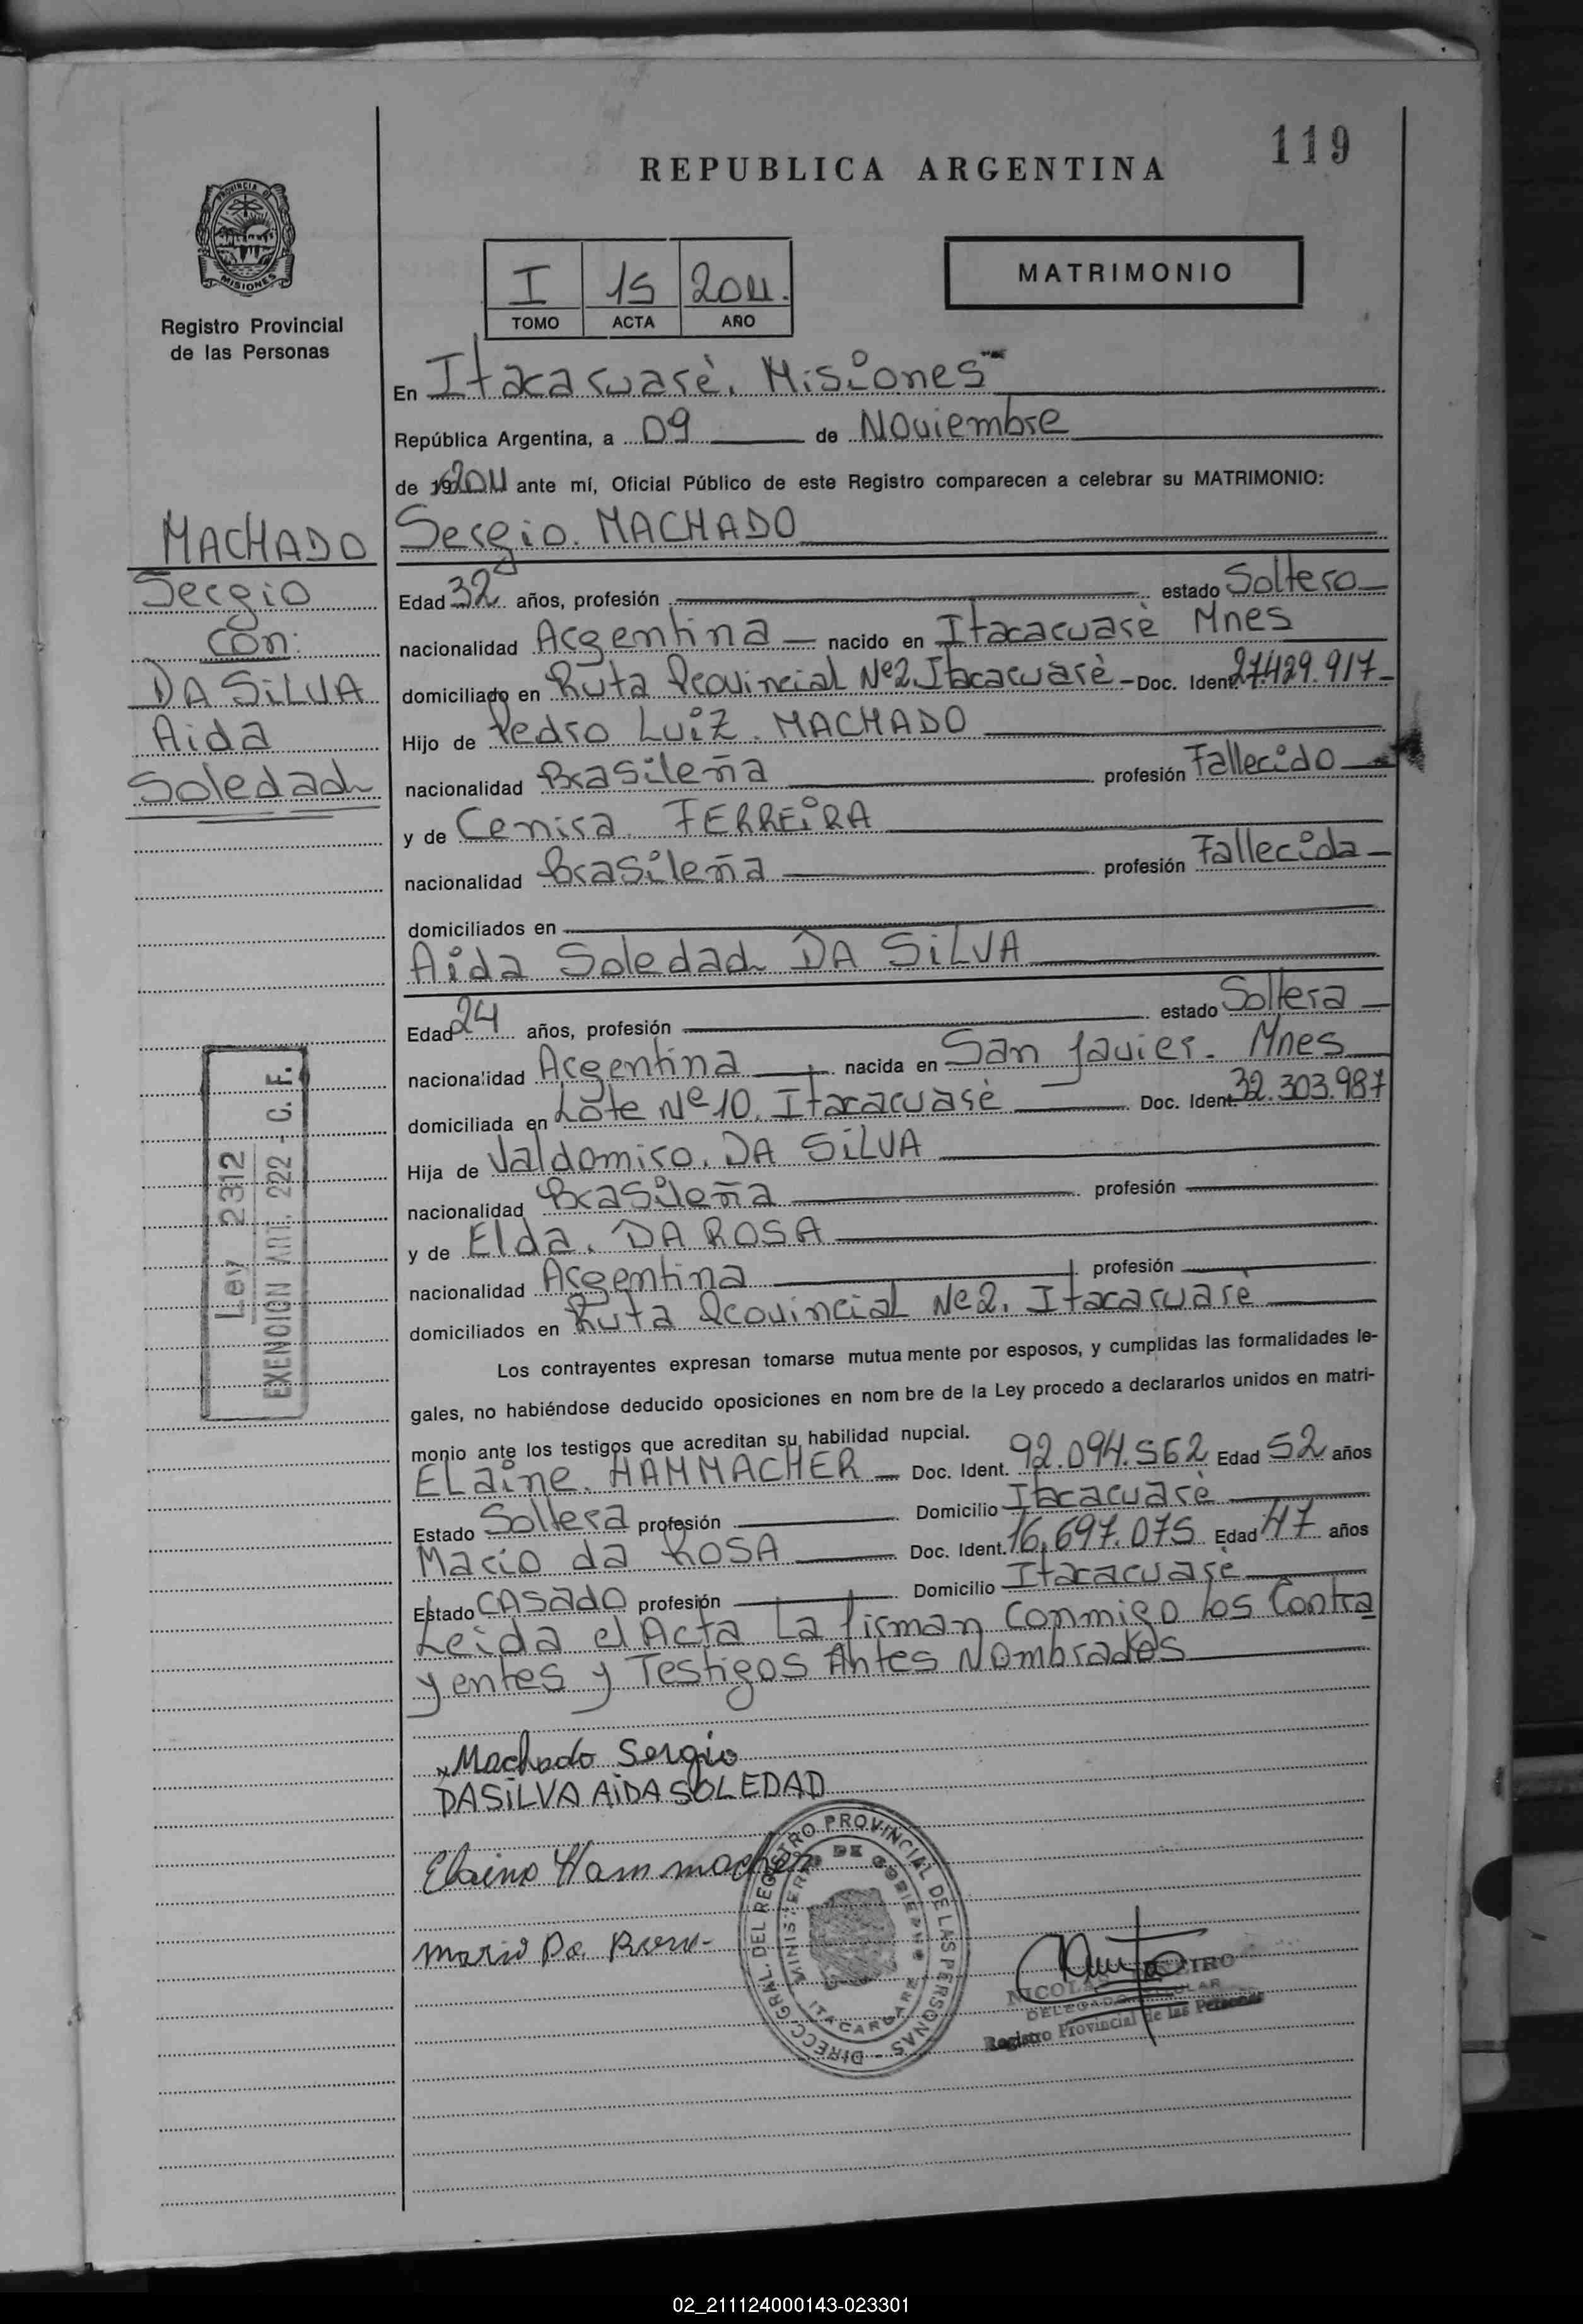 119
REPUBLICA ARGENTINA
PROVINCIA DE
MISIONES
Registro Provincial
de las Personas
I 15 2011.
TOMO ACTA AÑO
MATRIMONIO
En Itacaruarè. Misiones
República Argentina, a 09 de Noviembre
de 192011 ante mí, Oficial Público de este Registro comparecen a celebrar su MATRIMONIO:
MACHADO
Sergio
con:
DA SiLVA
Aida
Soledad
Sergio. MACHADO
Edad 32 años, profesión estado Soltero
nacionalidad Argentina nacido en Itacaruarè Mnes
domiciliado en Ruta Provincial Nº2 Itacaruarè - Doc. Ident. 27.429.917
Hijo de Pedro Luiz. MACHADO
nacionalidad Brasileña profesión Fallecido
y de Cenira. FERREiRA
nacionalidad Brasileña profesión Fallecida
domiciliados en
Aida Soledad DA SiLVA
Edad 24 años, profesión estado Soltera
nacionalidad Argentina nacida en San Javier. Mnes
domiciliada en Lote Nº 10. Itacaruarè Doc. Ident. 32.303.987
Hija de Valdomiro. DA SiLVA
nacionalidad Brasileña profesión
y de Elda. DA ROSA
nacionalidad Argentina profesión
domiciliados en Ruta Provincial Nº2. Itacaruarè
Ley 2312
EXENCION ART. 222 - C. F.
Los contrayentes expresan tomarse mutua mente por esposos, y cumplidas las formalidades le-
gales, no habiéndose deducido oposiciones en nom bre de la Ley procedo a declararlos unidos en matri-
monio ante los testigos que acreditan su habilidad nupcial.
ELaine. HAMMACHER Doc. Ident. 92.094.562 Edad 52 años
Estado Soltera profesión Domicilio Itacaruarè
Mario da ROSA Doc. Ident. 16.697.075 Edad 47 años
Estado CASADO profesión Domicilio Itacaruarè
Leida el Acta La firman conmigo los Contra
yentes y Testigos Antes Nombrados
Machado Sergio
DASiLVA AiDA SOLEDAD
Elaine Hammacher
Mario Da Rosa-
DIRECC. GRAL. DEL REGISTRO PROVINCIAL DE LAS PERSONAS
MINISTERIO DE GOBIERNO
ITACARUARE
NICOLAS
DELEGADO TITULAR
Registro Provincial de las Personas
02_211124000143-023301